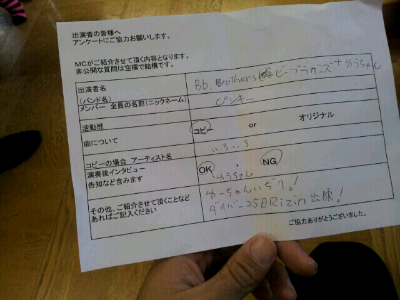 出演者の皆様へ
アンケートにご協力お願いします。
MCがご紹介させて頂く内容となります。
非公開な質問は空欄で結構です。
出演者名
(バンド名)
Bb. Brothers ビーブラザーズ+ゆうちゃん
メンバー 全員の名前(ニックネーム)
ピンキー
活動歴
コピー or オリジナル
曲について
いろいろ
コピーの場合 アーティスト名
演奏後インタビュー
告知など含みます
OK ・ NG
ゆうちゃん
ゆーちゃんいぢり!
その他、ご紹介させて頂くことなど
あればご記入ください
ダイバー25日Rizin出陣!
ご協力ありがとうございました。